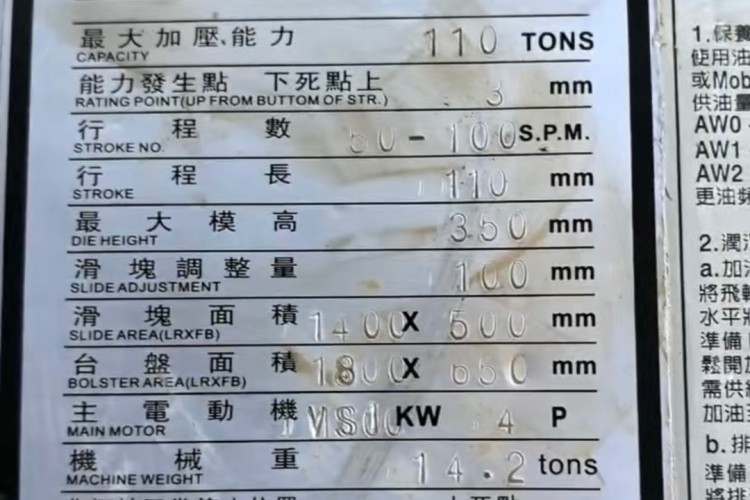 最大加壓能力 110 TONS
CAPACITY
能力發生點 下死點上 3 mm
RATING POINT(UP FROM BUTTOM OF STR.)
行程數 50-100 S.P.M.
STROKE NO.
行程長 110 mm
STROKE
最大模高 350 mm
DIE HEIGHT
滑塊調整量 100 mm
SLIDE ADJUSTMENT
滑塊面積 1400 X 500 mm
SLIDE AREA(LRXFB)
台盤面積 1800 X 650 mm
BOLSTER AREA(LRXFB)
主電動機 KW 4 P
MAIN MOTOR
機械重 14.2 tons
MACHINE WEIGHT
1.保養
使用油
或Mob
供油量
AW0
AW1
AW2
更油頻
2.潤滑
a.加油
將飛輪
水平將
準備
鬆開加
需供給
加油至
b.排
準備
將排